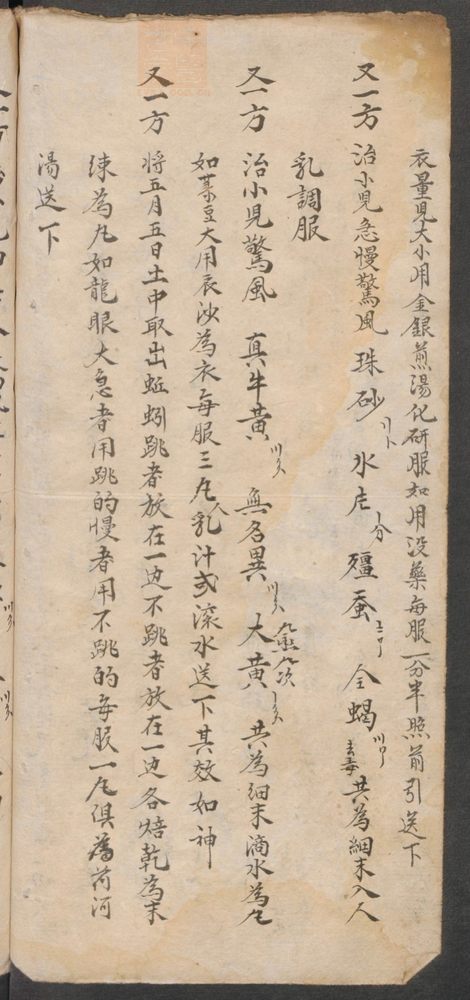 衣量児大小用金銀煎湯化研服如用没藥每服一分半照前引送下
又一方 治小児急慢驚風 珠砂 水片 殭蚕 全蝎 去毒 共為細末入人
乳調服
又一方 治小児驚風 真牛黄 無名異 大黄 共為細末滴水為丸
如菉豆大用辰沙為衣每服三丸乳汁或滚水送下其效如神
又一方 将五月五日土中取出蚯蚓跳者放在一边不跳者放在一边各焙乾為末
練為丸如龍眼大急者用跳的慢者用不跳的每服一丸俱薄荷河
湯送下